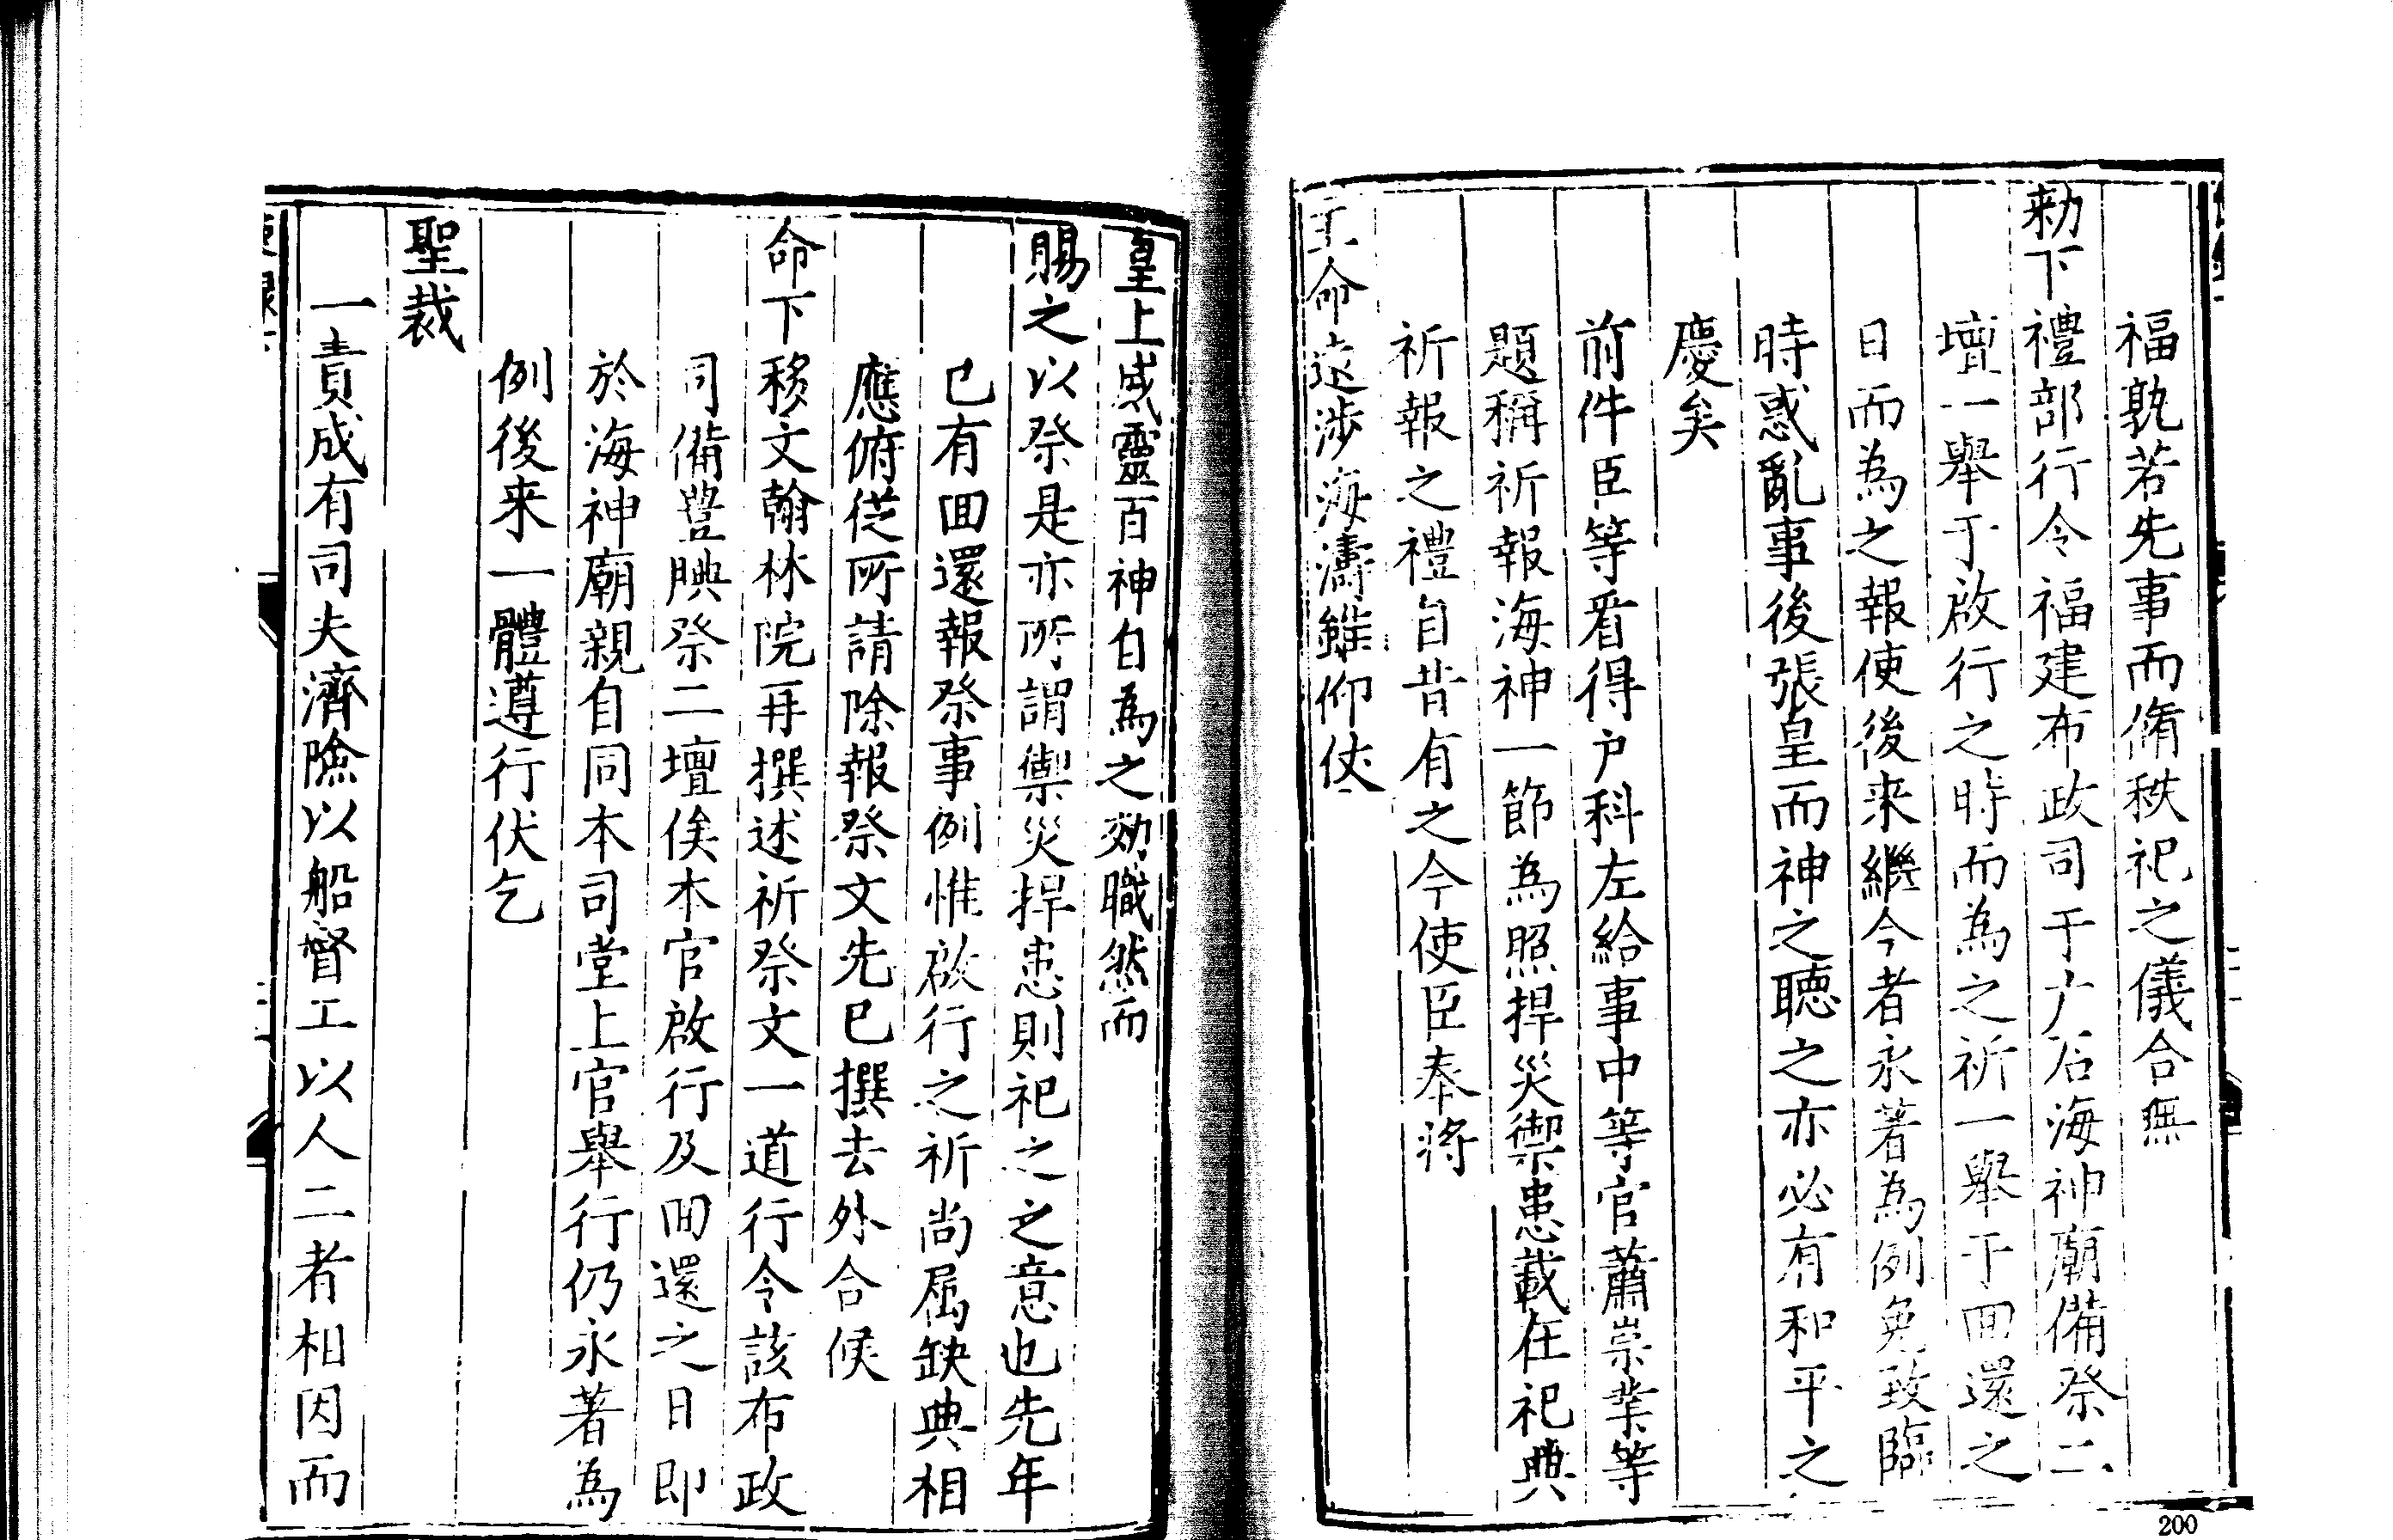 福孰若先事而脩秩祀之儀合無
勑下禮部行令福建布政司于广石海神廟備祭二
壇一舉于啟行之時而為之祈一舉于回還之
日而為之報使後来繼今者永著為例免致臨
時惑亂事後張皇而神之聴之亦必有和平之
慶矣
前件臣等看得户科左給事中等官蕭崇業等
題稱祈報海神一節為照捍災禦患載在祀典
祈報之禮自昔有之今使臣奉將
王命遠涉海濤雖仰仗
皇上威靈百神自為之効職然而
賜之以祭是亦所謂禦災捍患則祀之之意也先年
已有回還報祭事例惟啟行之祈尚屬缺典相
應俯從所請除報祭文先已撰去外合候
命下移文翰林院再撰述祈祭文一道行令該布政
司備豊腆祭二壇俟本官啟行及回還之日即
於海神廟親自同本司堂上官舉行仍永著為
例後来一體遵行伏乞
聖裁
一責成有司夫濟險以船督工以人二者相因而
200